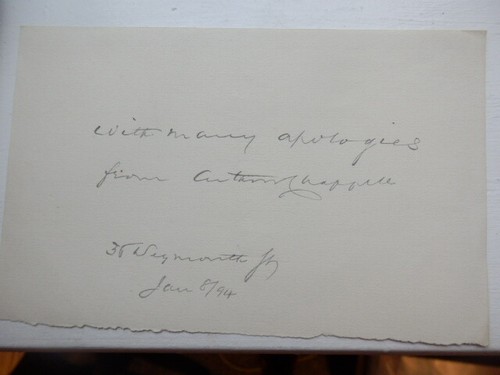 with many apologies
from Arthur Chappell
Weymouth St
Jan 8/94